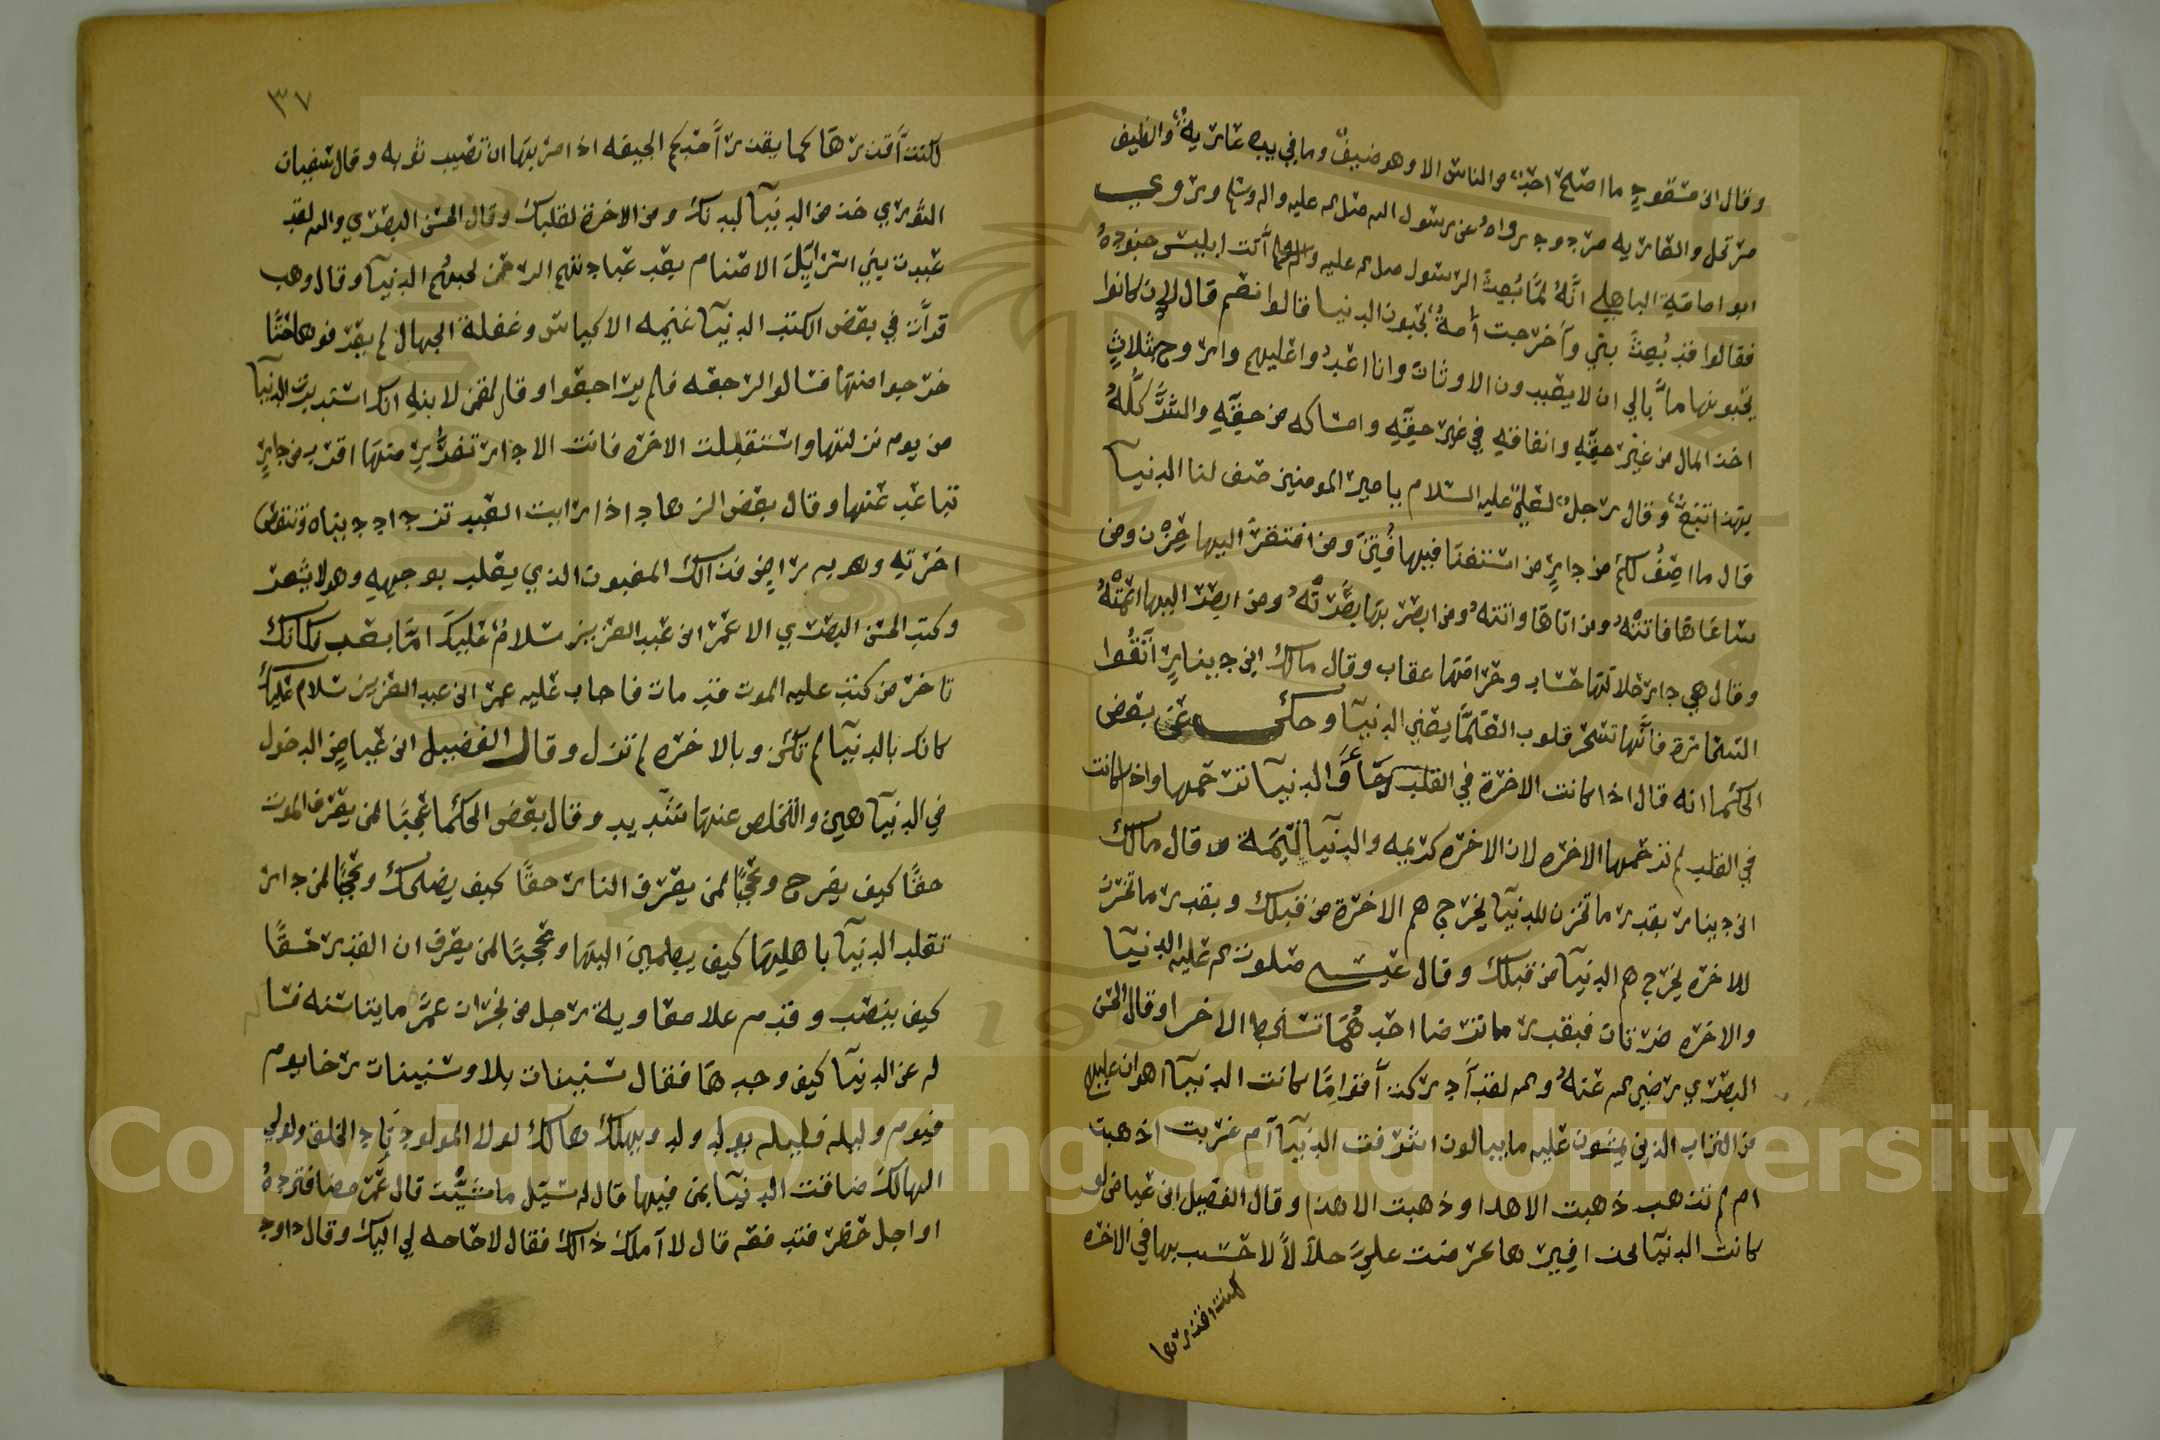 وقال ابن مسعود ما اصبح احد من الناس الا وهو ضيف وما في يده عارية والضيف
مرتحل والعاريه مردوده رواه عن رسول الله صلى الله عليه واله وسلم وروي
ابو امامة الباهلي انه لما بعث الرسول صلى الله عليه وسلم أتت ابليس جنوده
فقالوا قد بعث نبي وأخرجت أمة يحبون الدنيا قالوا نعم قال لان كانوا
يحبونها ما ابالي ان لا يعبدون الاوثان وانا اغدوا عليهم واروح بثلاث
اخذ المال من غير حقه وانفاقه في غير حقه وامساكه من حقه والشر كله
بهذا تبع وقال رجل لعلي عليه السلام يا امير المومنين صف لنا الدنيا
قال ما اصف لكم من دار من استغنا فيها فتن ومن افتقر اليها حزن ومن
ساعاها فاتته ومن اتاها واتته ومن ابصر بها بصرته ومن ابصر اليها اعمته
وقال هي دار حلالها حساب وحرامها عقاب وقال مالك ابن دينار اتقوا
السحارة فانها تسحر قلوب العلما يعني الدنيا وحكي عن بعض
الحكما انه قال اذا كانت الاخرة في القلب جاءت الدنيا تزحمها واذا كانت
في القلب لم تزحمها الاخره لان الاخره كريمه والدنيا لئيمة وقال مالك
ابن دينار بقدر ما تحزن للدنيا يخرج هم الاخرة من قبلك وبقدر ما تحزن
للاخره يخرج هم الدنيا من قبلك وقال عيسى صلوت الله عليه الدنيا
والاخره ضرتان فبقدر ما ترضا احدهما تسخط الاخرا وقال الحسن
البصري رضي الله عنه والله لقد أدركت أقواما كانت الدنيا اهون عليهم
من التراب الذين يمشون عليه ما يبالون اشرقت الدنيا أم غربت اذهبت
ام لم تذهب ذهبت الا هدا وذهبت الا هذا وقال الفضيل ابن عياض لو
كانت الدنيا بحذافيرها عرضت علي حلالا لا حسب بها في الاخره
لكنت اقذرها
٣٧
لكنت أقذرها كما يقذر أحدكم الجيفه اذا مر بها ان تصيب ثوبه وقال سفيان
الثوري خذ من الدنيا لبدنك ومن الاخرة لقلبك وقال الحسن البصري والله لقد
عبدت بني اسرائيل الاصنام بعد عبادتهم الرحمن لحبهم الدنيا وقال وهب
قرأت في بعض الكتب الدنيا غنيمه الاكياس وغفلة الجهال لم يعرفوها حتا
خرجوا منها فسالوا الرجعه فلم يراجعوا وقال لقمن لابنه انك استدبرت الدنيا
من يوم نزلتها واستقبلت الاخره فانت الا دار تقرب منها اقرب من دار
تباعد عنها وقال بعض الزهاد اذا رايت العبد تزداد دنياه وتنقص
اخرته وهو به راضي فذالك المغبون الذي يلعب بوجهه وهو لا يشعر
وكتب الحسن البصري الا عمر ابن عبد العزيز سلام عليك اما بعد فكانك
باخر من كتب عليه الموت قد مات فاجاب عليه عمر ابن عبد العزيز سلام عليك
كانك بالدنيا لم تكن وبالاخره لم تزل وقال الفضيل ابن عياض الدخول
في الدنيا هين والتخلص عنها شديد وقال بعض الحكما عجبا لمن يعرف الموت
حقا كيف يفرح وعجبا لمن يعرف النار حقا كيف يضحك وعجبا لمن دار
تقلب الدنيا باهليها كيف يطمين اليها وعجبا لمن يعرف ان القدر حقا
كيف ينصب وقدم علا معاوية رجل من نجران عمره مايتا سنه فسا
له عن الدنيا كيف وجدها فقال سنينات بلا وسنينات رخا يوم
فيوم وليله فليله يولد ولد ويهلك هالك لولا المولود باد الخلق ولولا
الهالك ضاقت الدنيا بمن فيها قال له سيل ما شئت قال عمر مضا فترده
او اجل حضر فتدفعه قال لا أملك ذالك فقال لا حاجه لي اليك وقال داود